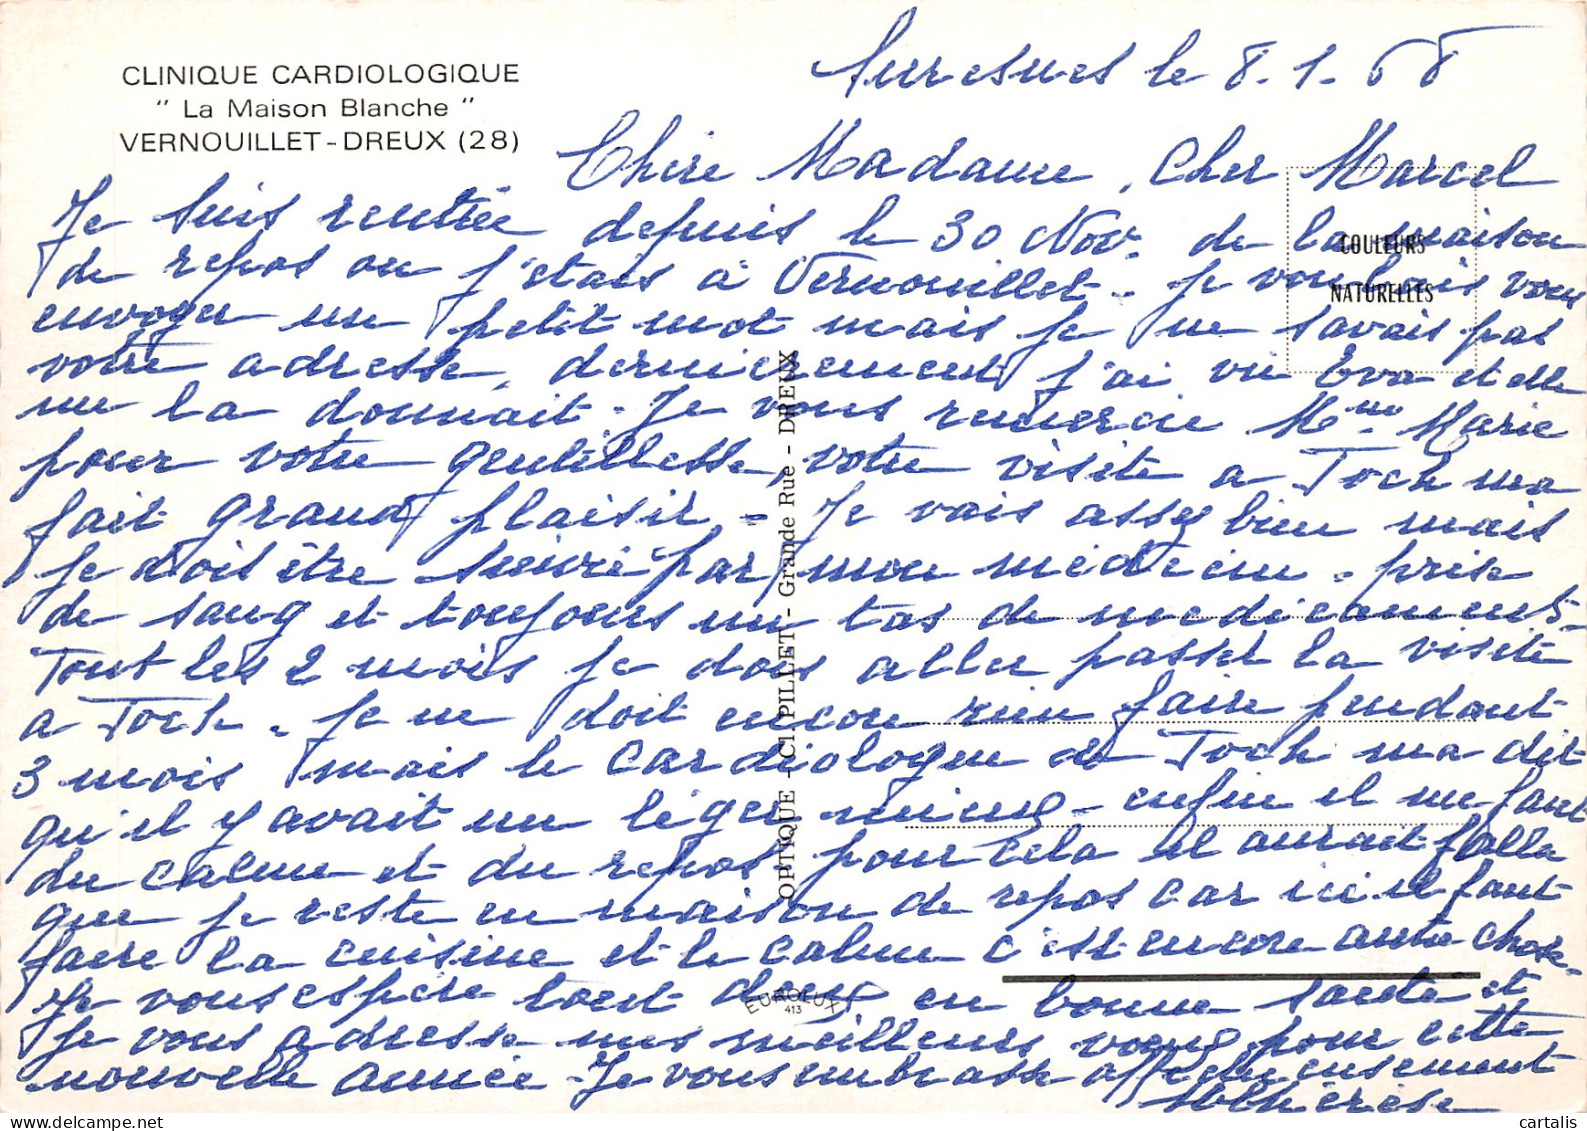 CLINIQUE CARDIOLOGIQUE
" La Maison Blanche "
VERNOUILLET - DREUX (28)
Suresnes le 8.1.68
Chère Madame, Cher Marcel
Je suis rentrée depuis le 30 Nov. de la maison
de repos ou j'etais à Vernouillet. Je voulais vous
envoyer un petit mot mais je ne savais pas
votre adresse, dernierement j'ai vu Eva et elle
me la donnait. Je vous remercie Mme Marie
pour votre gentillesse, votre visite a Foch ma
fait grand plaisir. - Je vais assez bien mais
je dois être suivie par mon médecin. prise
de sang et toujours un tas de medicaments.
Tout les 2 mois je dois aller passer la visite
a Foch. Je ne doit encore rien faire pendant
3 mois mais le cardiologue de Foch ma dit
qu'il y avait un léger mieux - enfin il me faut
du calme et du repos pour cela il aurait falla
que je reste en maison de repos car ici il faut
faire la cuisine et le calme c'est encore autre chose.
Je vous espère tout deux en bonne santé et
je vous adresse mes meilleurs voeux pour cette
nouvelle année - Je vous embrasse affectueusement
COULEURS
NATURELLES
OPTIQUE - Cl. PILLET - Grande Rue - DREUX
EUROLUX
413
cartalis